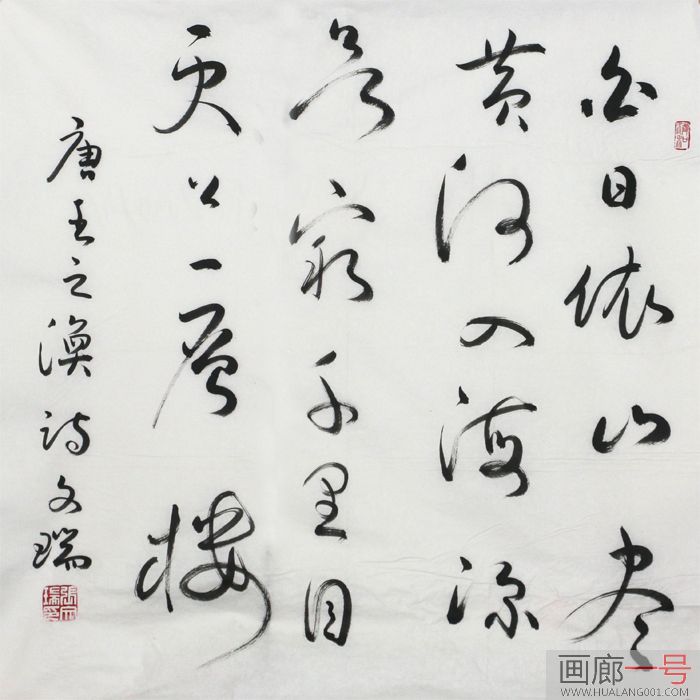 白日依山尽
黄河入海流
欲穷千里目
更上一层楼
唐王之涣诗文瑞
張文瑞印
画廊一号
WWW.HUALANG001.COM